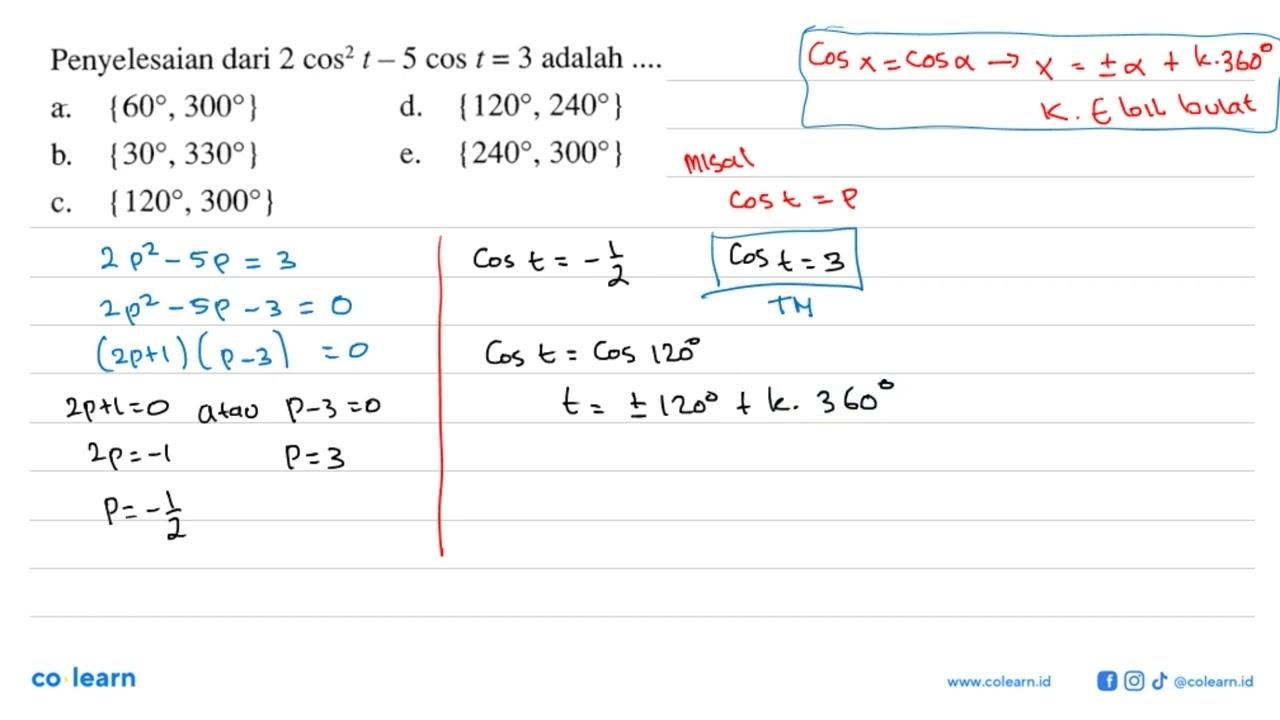 Penyelesaian dari 2 cos² t – 5 cos t = 3 adalah ....
a. {60°, 300°} d. {120°, 240°}
b. {30°, 330°} e. {240°, 300°}
c. {120°, 300°}
Cos x = cos α → x = ± α + k.360°
K. ∈ bil bulat
Misal
Cos t = P
2p² – 5p = 3
2p² – 5p – 3 = 0
(2p+1)(p–3) = 0
2p+1=0 atau p–3=0
2p=–1 P=3
P=–1/2
Cos t = –1/2 Cos t = 3
TM
Cos t = cos 120°
t = ± 120° + k. 360°
co learn
www.colearn.id @colearn.id